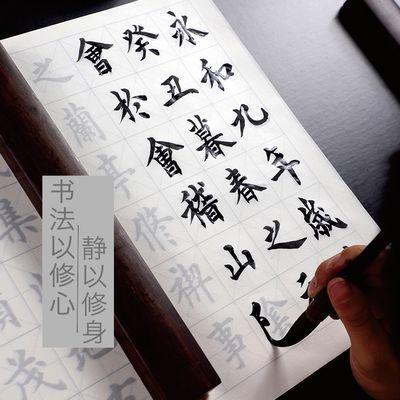 永和九年歲
癸丑暮春之
會於會稽山陰
之蘭亭修禊事
集
茂
书法以修心
静以修身